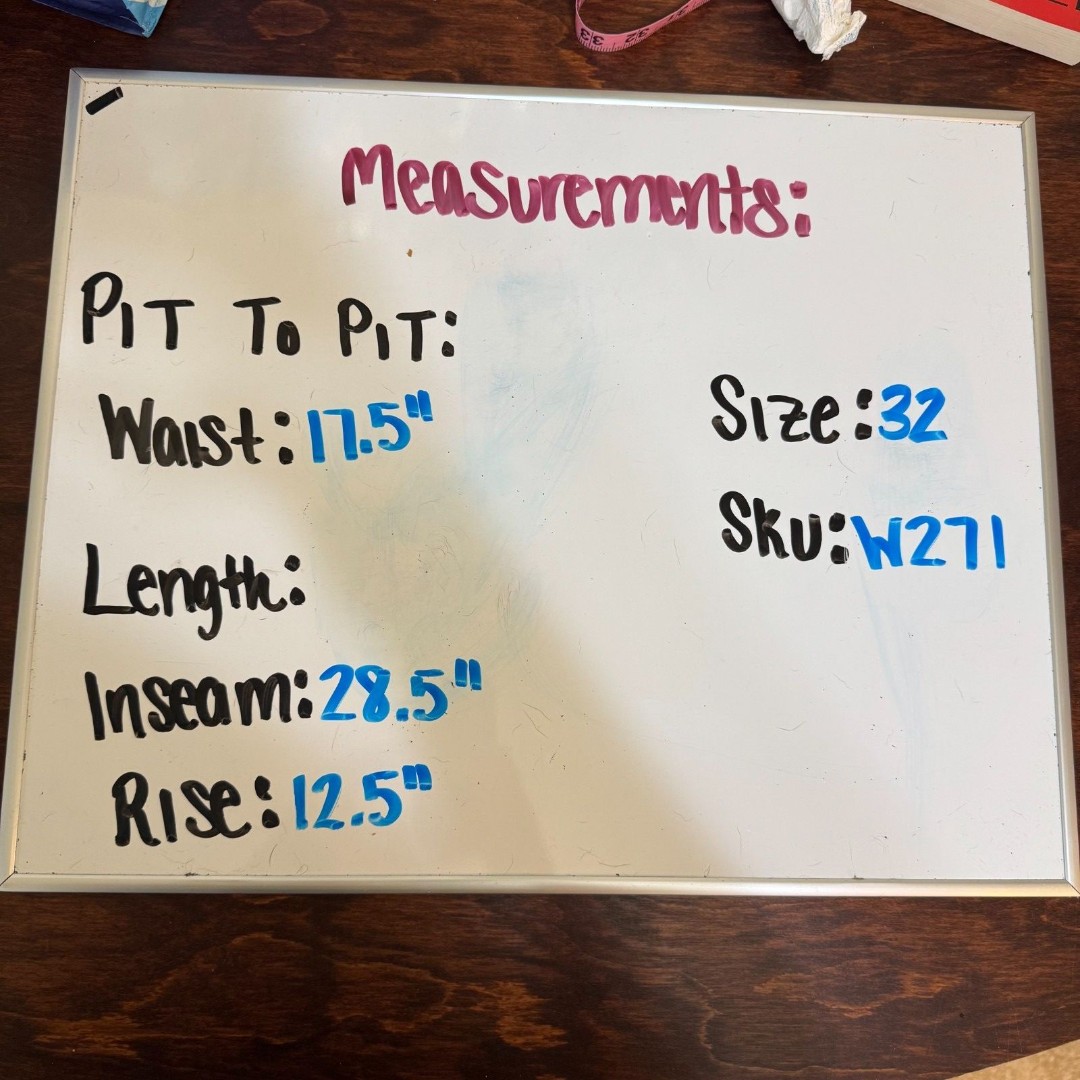 Measurements:
PIT To PIT:
Waist: 17.5"
Length:
Inseam: 28.5"
Rise: 12.5"
Size: 32
Sku: W271
33 32